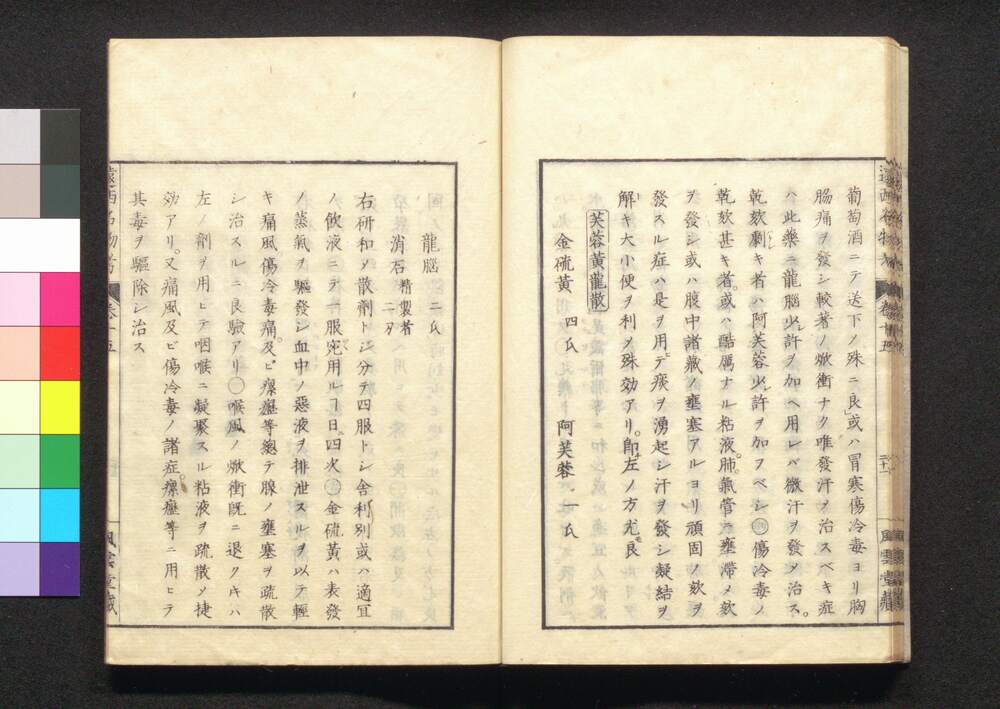 葡萄酒ニテ送下ノ殊ニ良」或ハ冒寒傷冷毒ヨリ胸
腸痛ヲ發シ較著ノ焮衝ナク唯發汗ノ治スベキ症
ハ此藥ニ龍脳少許ヲ加ヘ用レバ微汗ヲ發ノ治ス。
乾欬劇キ者ハ阿芙蓉少許ヲ加フベシ○傷冷毒ノ
乾欬甚キ者。或ハ酷厲ナル粘液。肺。氣管ニ壅滞メ欬
ヲ發シ或ハ腹中諸藏ノ壅塞アルヨリ頑固ノ欬ヲ
發スル症ハ是ヲ用テ痰ヲ湧起シ汗ヲ發シ凝結ヲ
解キ大小便ヲ利ノ殊効アリ。即左ノ方尤良
芙蓉黄龍散
金硫黄 四氏 阿芙蓉 一氏
龍脳 二氏
消石 精製者 二刄
右研和ノ散剤トシ分テ四服トシ舎利別或ハ適宜
ノ飲液ニテ一服宛用ルヿ日ニ四次○金硫黄ハ表發
ノ蒸氣ヲ驅發シ血中ノ惡液ヲ排泄スルヲ以テ輕
キ痛風。傷冷毒痛。及ビ瘰癧等總テ腺ノ壅塞ヲ疏散
シ治スルニ良驗アリ○喉風ノ焮衝既ニ退クキハ
左ノ劑ヲ用ヒテ咽喉ニ凝聚スル粘液ヲ疏散ノ捷
効アリ。又痛風及ビ傷冷毒ノ諸症。瘰癧等ニ用ヒテ
其毒ヲ驅除シ治ス
遠西名物考 卷十五 風雲堂藏